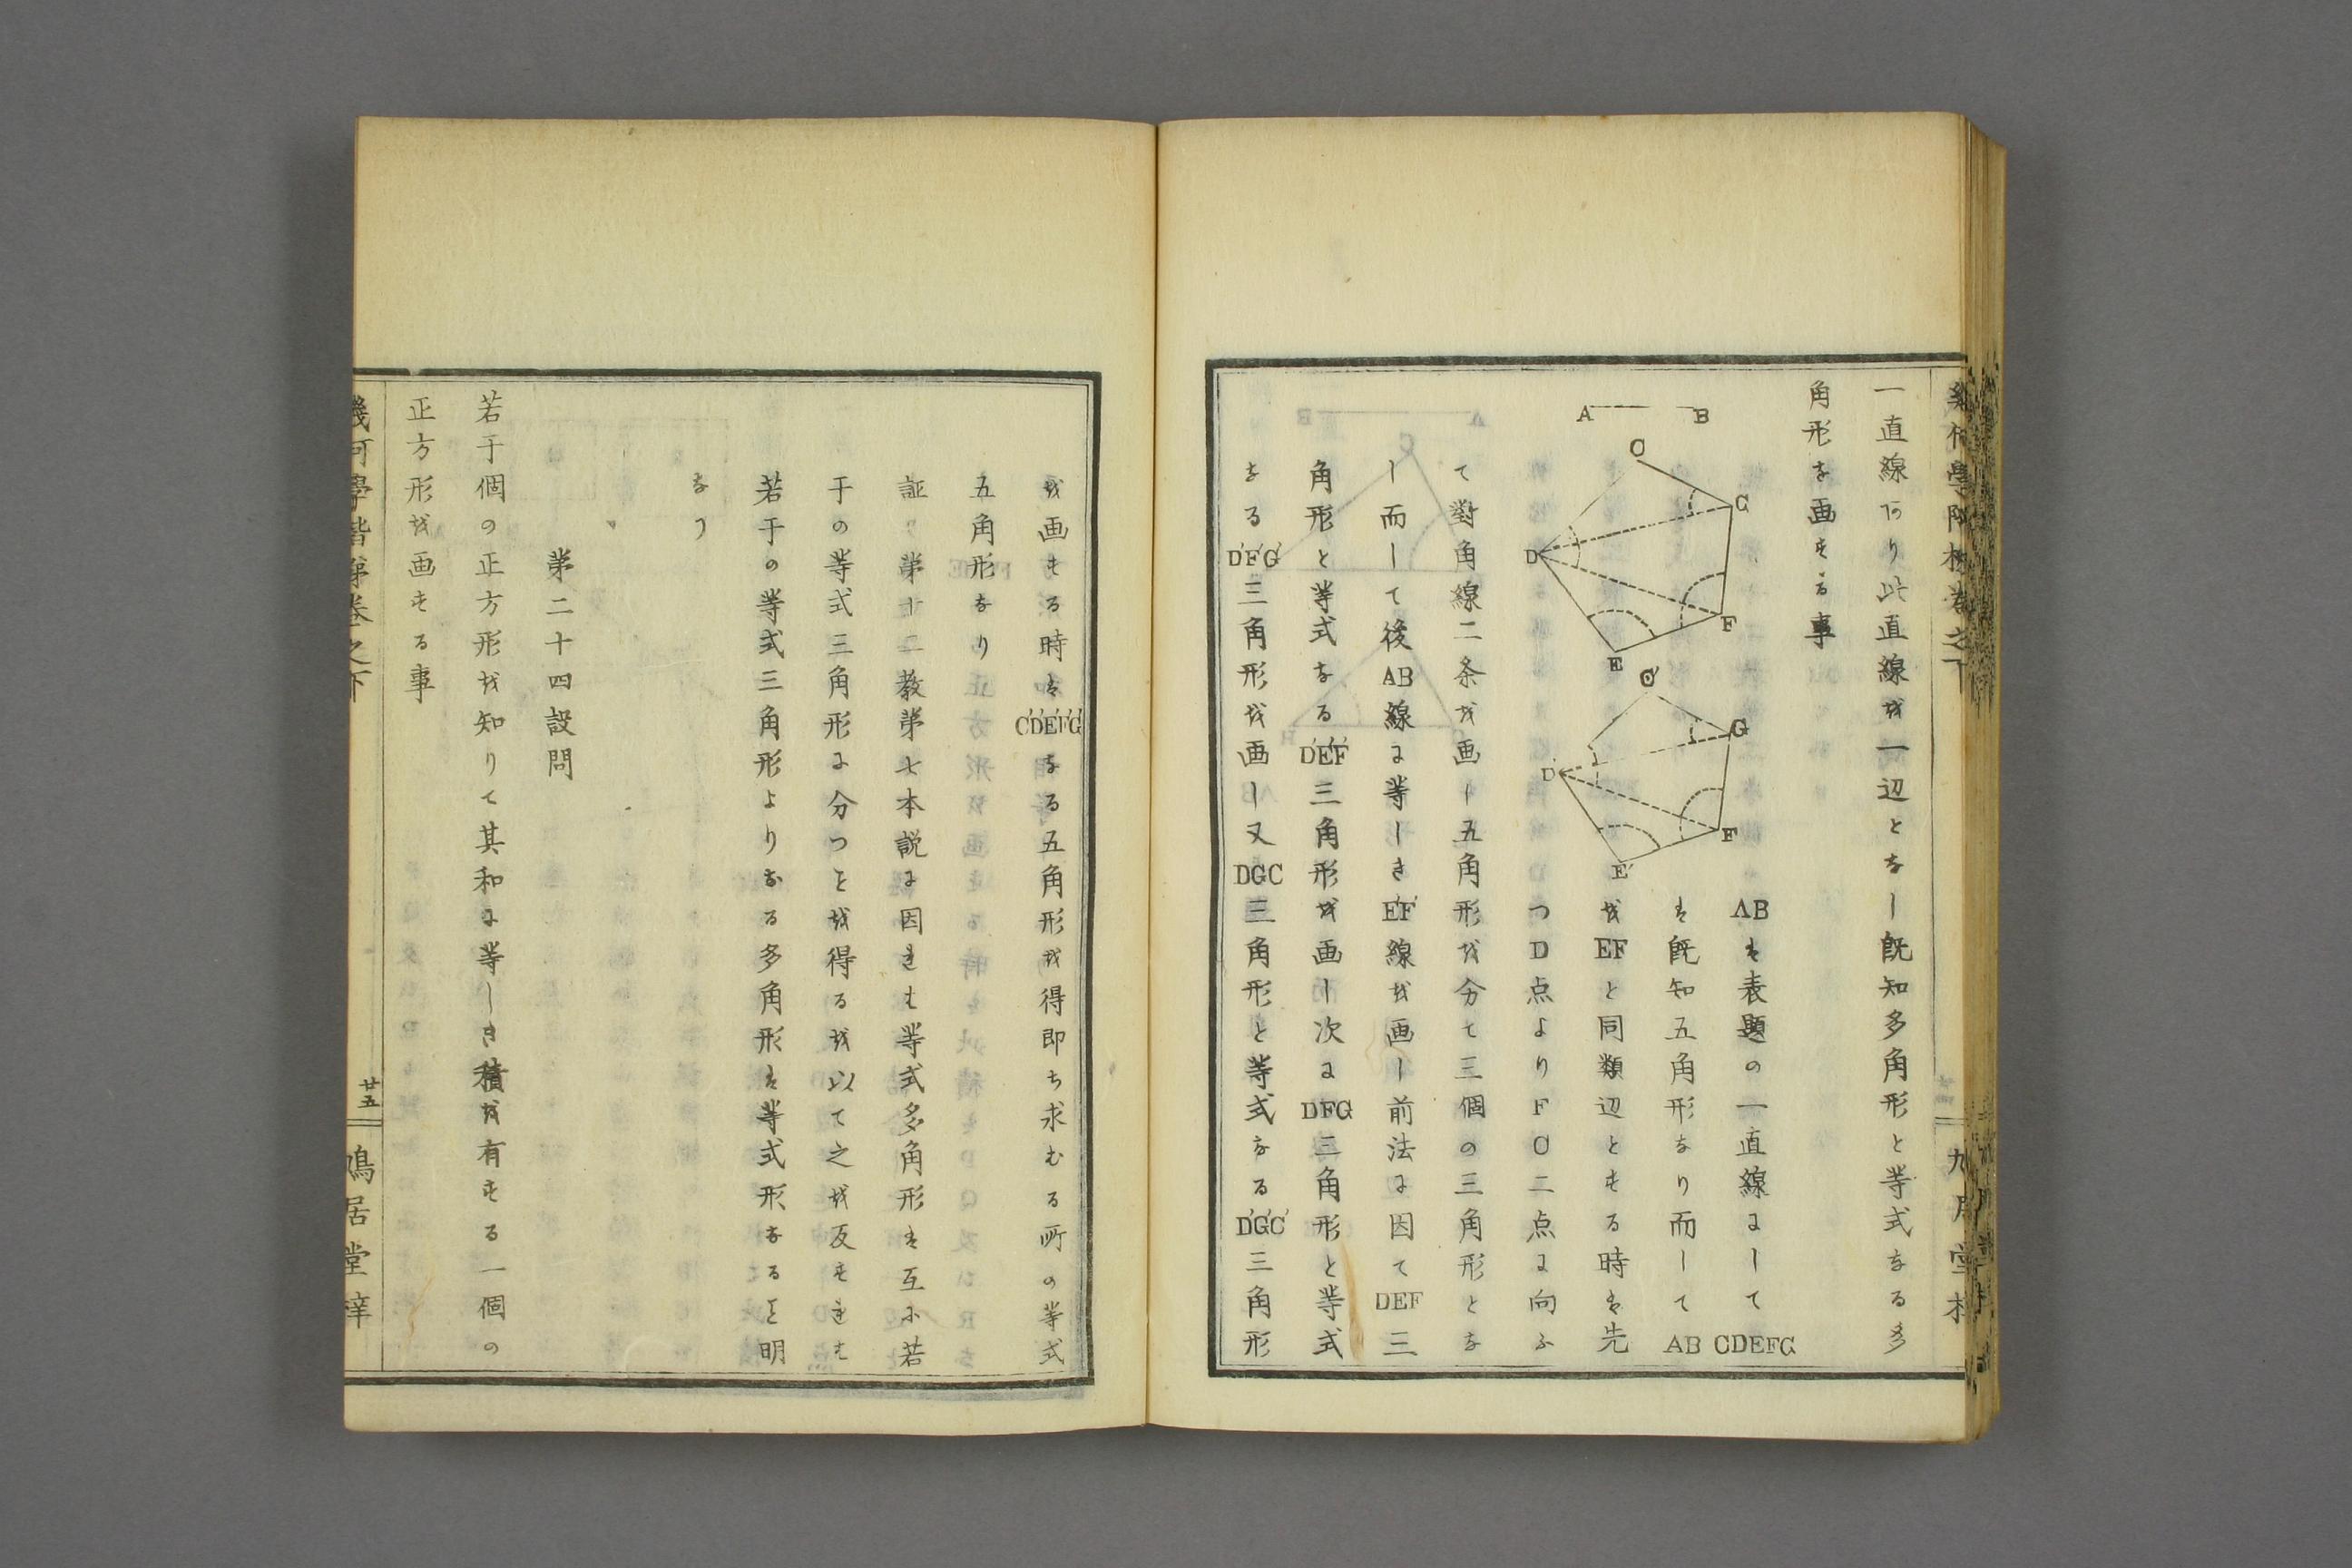 一直線あり此直線を一辺となし既知多角形と等式なる多
角形を画する事
A B
C
G
D
F
E
C'
G
D'
F
E'
ABは表題の一直線にして CDEFG
は既知五角形なり而して AB
を EF と同類辺とする時は先
つ D 点より F C 二点に向ふ
て對角線二条を画し五角形を分て三個の三角形とな
し而して後 AB 線に等しき E'F' 線を画し前法に因て DEF 三
角形と等式なる D'E'F' 三角形を画し次に DFG 三角形と等式
なる D'F'G' 三角形を画し又 DGC 三角形と等式なる D'G'C' 三角形
を画する時は C'D'E'F'G' なる五角形を得即ち求むる所の等式
五角形なり
証 第十二教第七本説に因れは等式多角形は互に若
干の等式三角形に分つを得るを以て之を反すれは
若干の等式三角形よりなる多角形は等式形なるを明
なり
第二十四設問
若干個の正方形を知りて其和に等しき積を有する一個の
正方形を画する事
幾何學階梯卷之下
廿五
鳩居堂梓